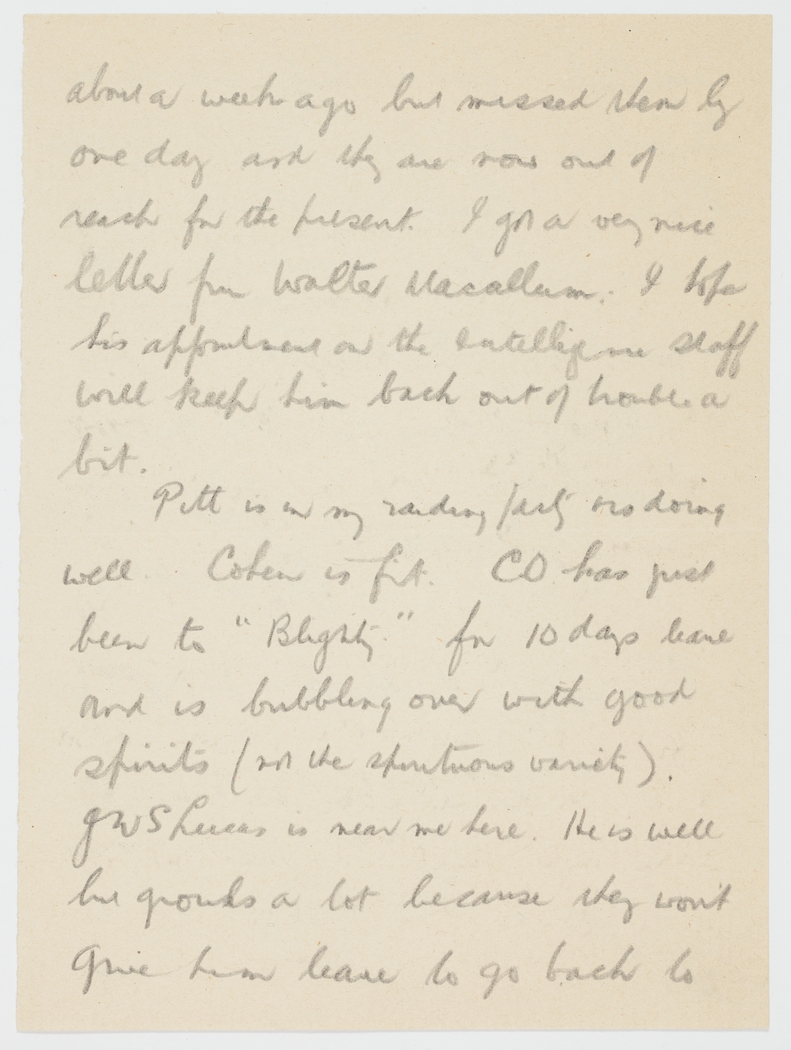 about a week ago but missed them by
one day and they are now out of
reach for the present. I got a very nice
letter from Walter Macallum. I hope
his appointment on the Intelligence staff
will keep him back out of trouble a
bit.
Pitt is in my raiding party & is doing
well. Cohen is fit. CO has just
been to "Blighty" for 10 days leave
and is bubbling over with good
spirits (not the spirituous variety).
GWS Lucas is near me here. He is well
but growls a lot because they won't
give him leave to go back to